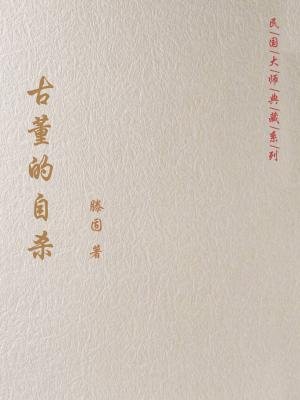 民国大师典藏系列
古董的自杀
滕固 著